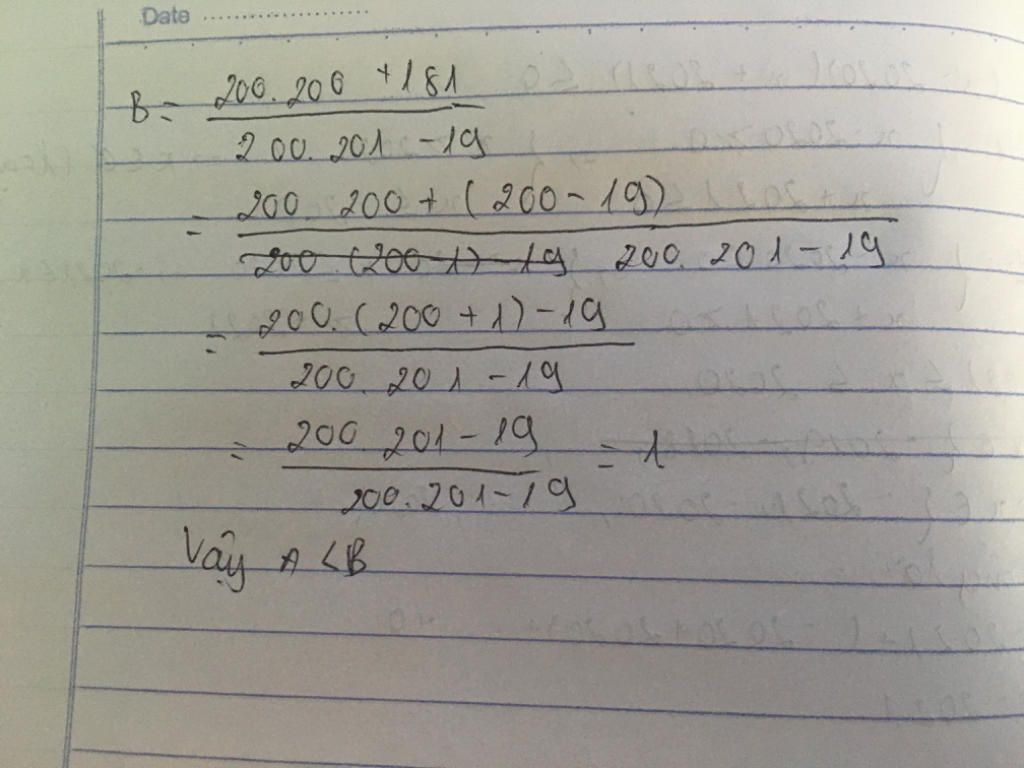 Date
B = 200.200 + 181
200.201 - 19
= 200 200 + (200 - 19)
200.(200 1) - 19 200.201 - 19
= 200.(200 + 1) - 19
200.201 - 19
= 200.201 - 19 = 1
200.201 - 19
Vậy A < B